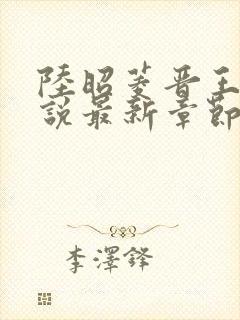 陸昭菱晉王
說最新章節
李澤鋒